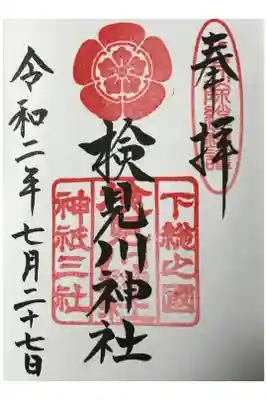 奉拝
検見川神社
下総之國
神祇三社
令和二年七月二十七日